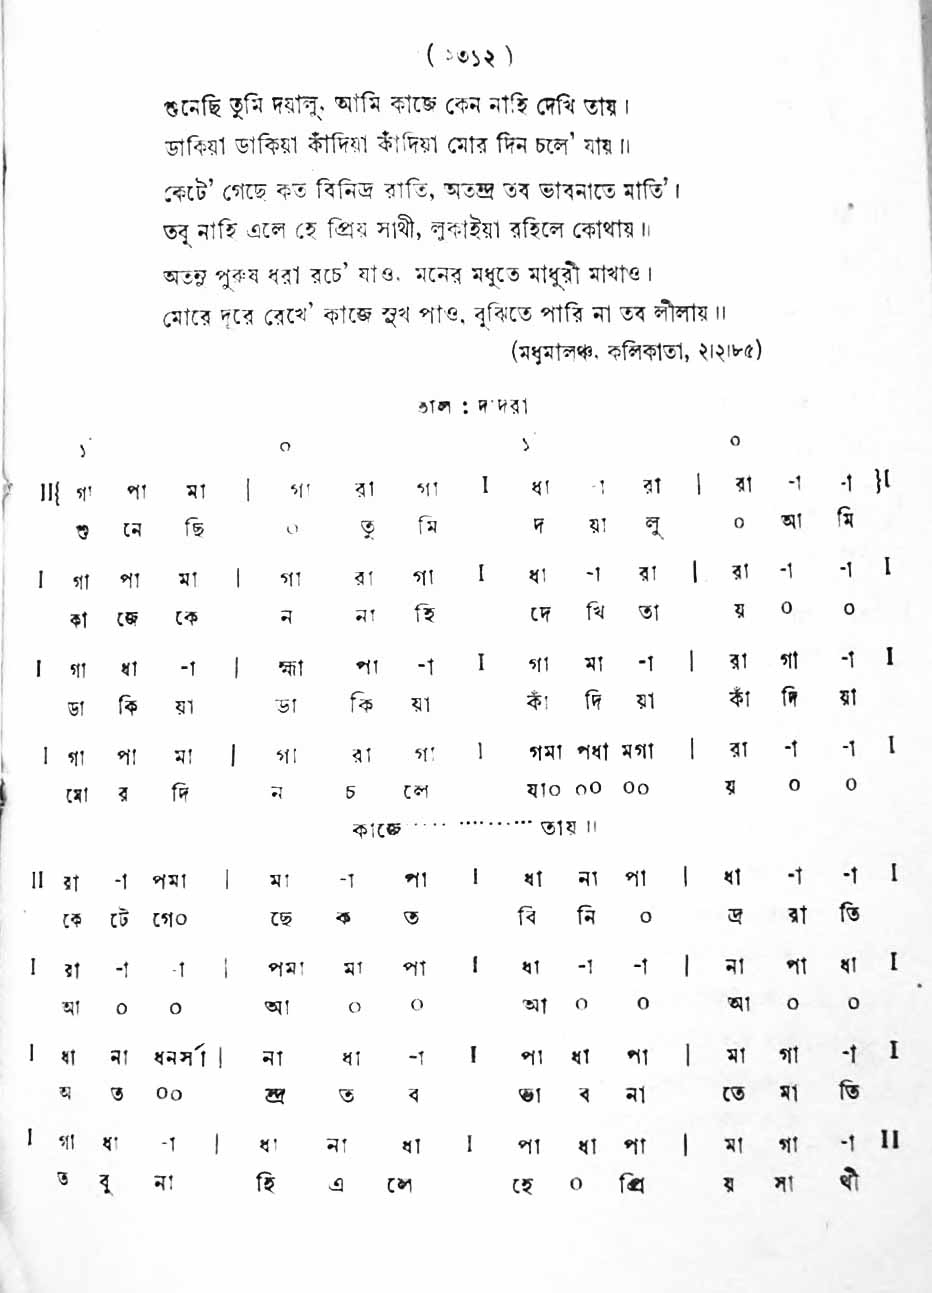 ( ১৩১২ )
শুনেছি তুমি দয়ালু, আমি কাজে কেন নাহি দেখি তায়।
ডাকিয়া ডাকিয়া কাঁদিয়া কাঁদিয়া মোর দিন চলে' যায়॥
কেটে' গেছে কত বিনিদ্র রাতি, অতন্দ্র তব ভাবনাতে মাতি'।
তবু নাহি এলে হে প্রিয় সাথী, লুকাইয়া রহিলে কোথায়॥
অতনু পুরুষ ধরা রচে' যাও, মনের মধুতে মাধুরী মাখাও।
মোরে দূরে রেখে' কাজে সুখ পাও, বুঝিতে পারি না তব লীলায়॥
(মধুমালঞ্চ, কলিকাতা, ২।২।৮৫)
তাল : দাদরা
১´ ০ ১´ ০
II{ গা পা মা | গা রা গা I ধা -া রা | রা -া -া }I
শু নে ছি ০ তু মি দ য়া লু ০ আ মি
I গা পা মা | গা রা গা I ধা -া রা | রা -া -া I
কা জে কে ন না হি দে খি তা য় ০ ০
I গা ধা -া | হ্মা পা -া I গা মা -া | রা গা -া I
ডা কি য়া ডা কি য়া কাঁ দি য়া কাঁ দি য়া
I গা পা মা | গা রা গা I গমা পধা মগা | রা -া -া I
মো র দি ন চ লে যা০ ০০ ০০ য় ০ ০
কাজে ···· ·········· তায়॥
II রা -া পমা | মা -া পা I ধা না পা | ধা -া -া I
কে টে গে০ ছে ক ত বি নি ০ দ্র রা তি
I রা -া -া | পমা মা পা I ধা -া -া | না পা ধা I
আ ০ ০ আ ০ ০ আ ০ ০ আ ০ ০
I ধা না ধনর্সা | না ধা -া I পা ধা পা | মা গা -া I
অ ত ০০ ন্দ্র ত ব ভা ব না তে মা তি
I গা ধা -া | ধা না ধা I পা ধা পা | মা গা -া II
ত বু না হি এ লে হে ০ প্রি য় সা থী